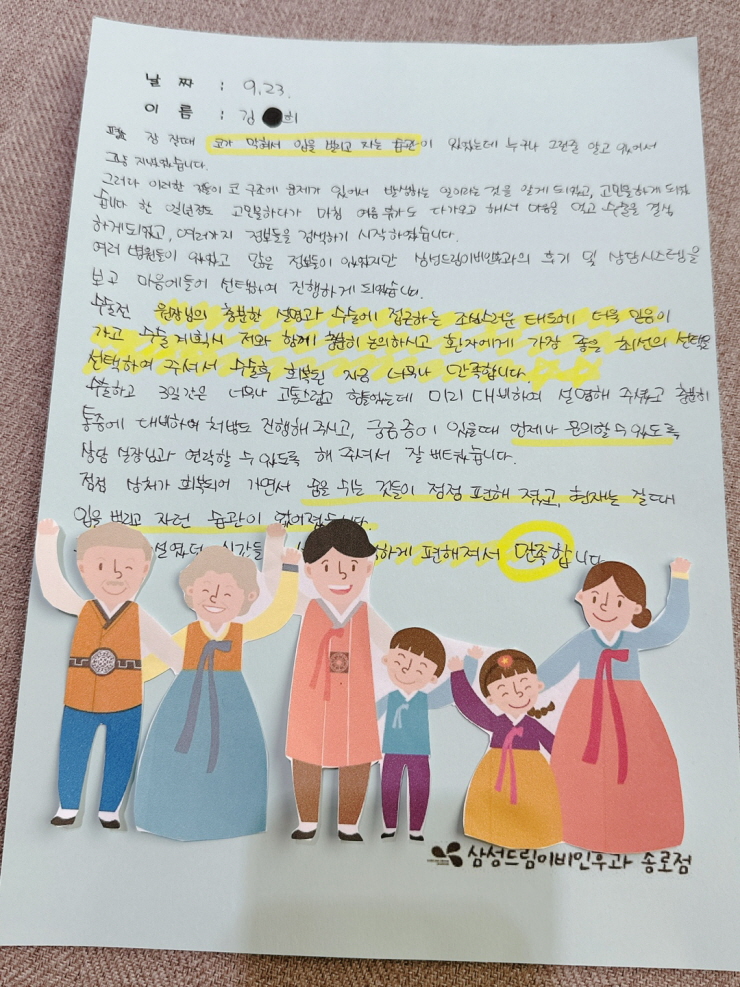 날 짜 : 9.23.
이 름 : 김 희
평소 잠 잘때 코가 막혀서 입을 벌리고 자는 습관이 있었는데 누구나 그런줄 알고 있어서
그냥 지냈었습니다.
그러다 이러한 것들이 코 구조에 문제가 있어서 발생하는 일이라는 것을 알게 되었고, 고민을하게 되었
습니다 한 일년정도 고민을하다가 마침 여름 휴가도 다가오고 해서 마음을 먹고 수술을 결심
하게되었고, 여러가지 정보들을 검색하기 시작하였습니다.
여러 병원들이 나왔고 많은 정보들이 나왔지만 삼성드림이비인후과의 후기 및 상담시스템을
보고 마음에들어 선택하여 진행하게 되었습니다.
수술전 원장님의 충분한 설명과 수술에 접근하는 조심스러운 태도에 더욱 믿음이
가고 수술 계획시 저와 함께 충분히 논의하시고 환자에게 가장 좋을 최선의 선택을
선택하여 주셔서 수술후 회복된 지금 너무나 만족합니다.
수술하고 3일간은 너무나 고통스럽고 힘들었는데 미리 대비하여 설명해 주셨고 충분히
통증에 대비하여 처방도 진행해 주시고, 궁금증이 있을때 언제나 문의할 수 있도록
상담 실장님과 연락할 수 있도록 해 주셔서 잘 버텨냈습니다.
점점 상처가 회복되어 가면서 숨을 쉬는 것들이 점점 편해 졌고, 현재는 잘때
입을 벌리고 자던 습관이 없어졌습니다.
시간들 하게 편해져서 만족합니다
삼성드림이비인후과 종로점